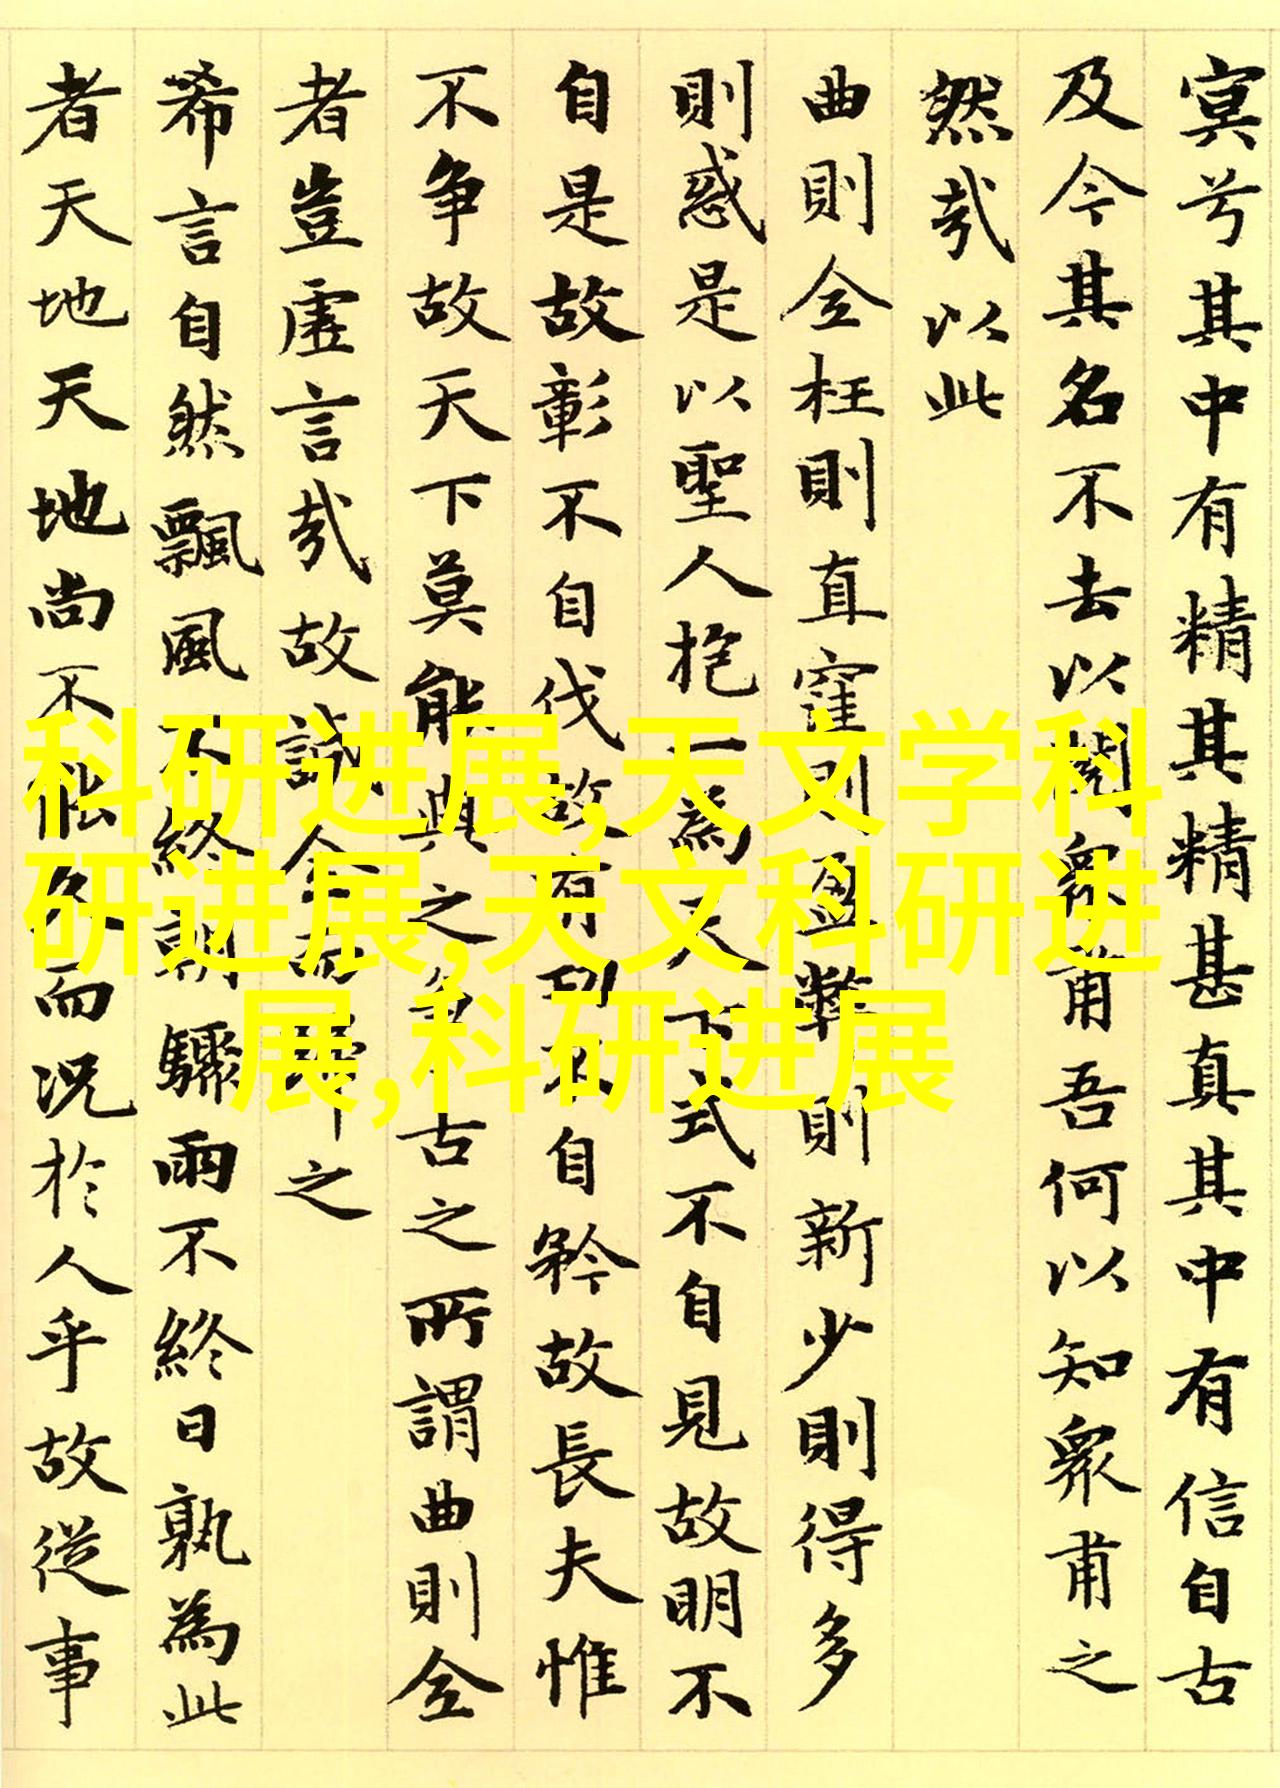 冥兮其中有精其精甚真其中有信自古
及今其名不去以閱衆甫吾何以知衆甫之
然哉以此
曲則全枉則直窪則盈弊則新少則得多
則惑是以聖人抱一為天下式不自見故明不
自是故彰不自伐故有功不自矜故長夫惟
不争故天下莫能與之争古之所謂曲則全
者豈虛言哉故誠全而歸之
希言自然飄風不終朝驟雨不終日孰為此
者天地天地尚不能久而況於人乎故從事
科研进展,天文学科
研进展,天文科研进
展,科研进展